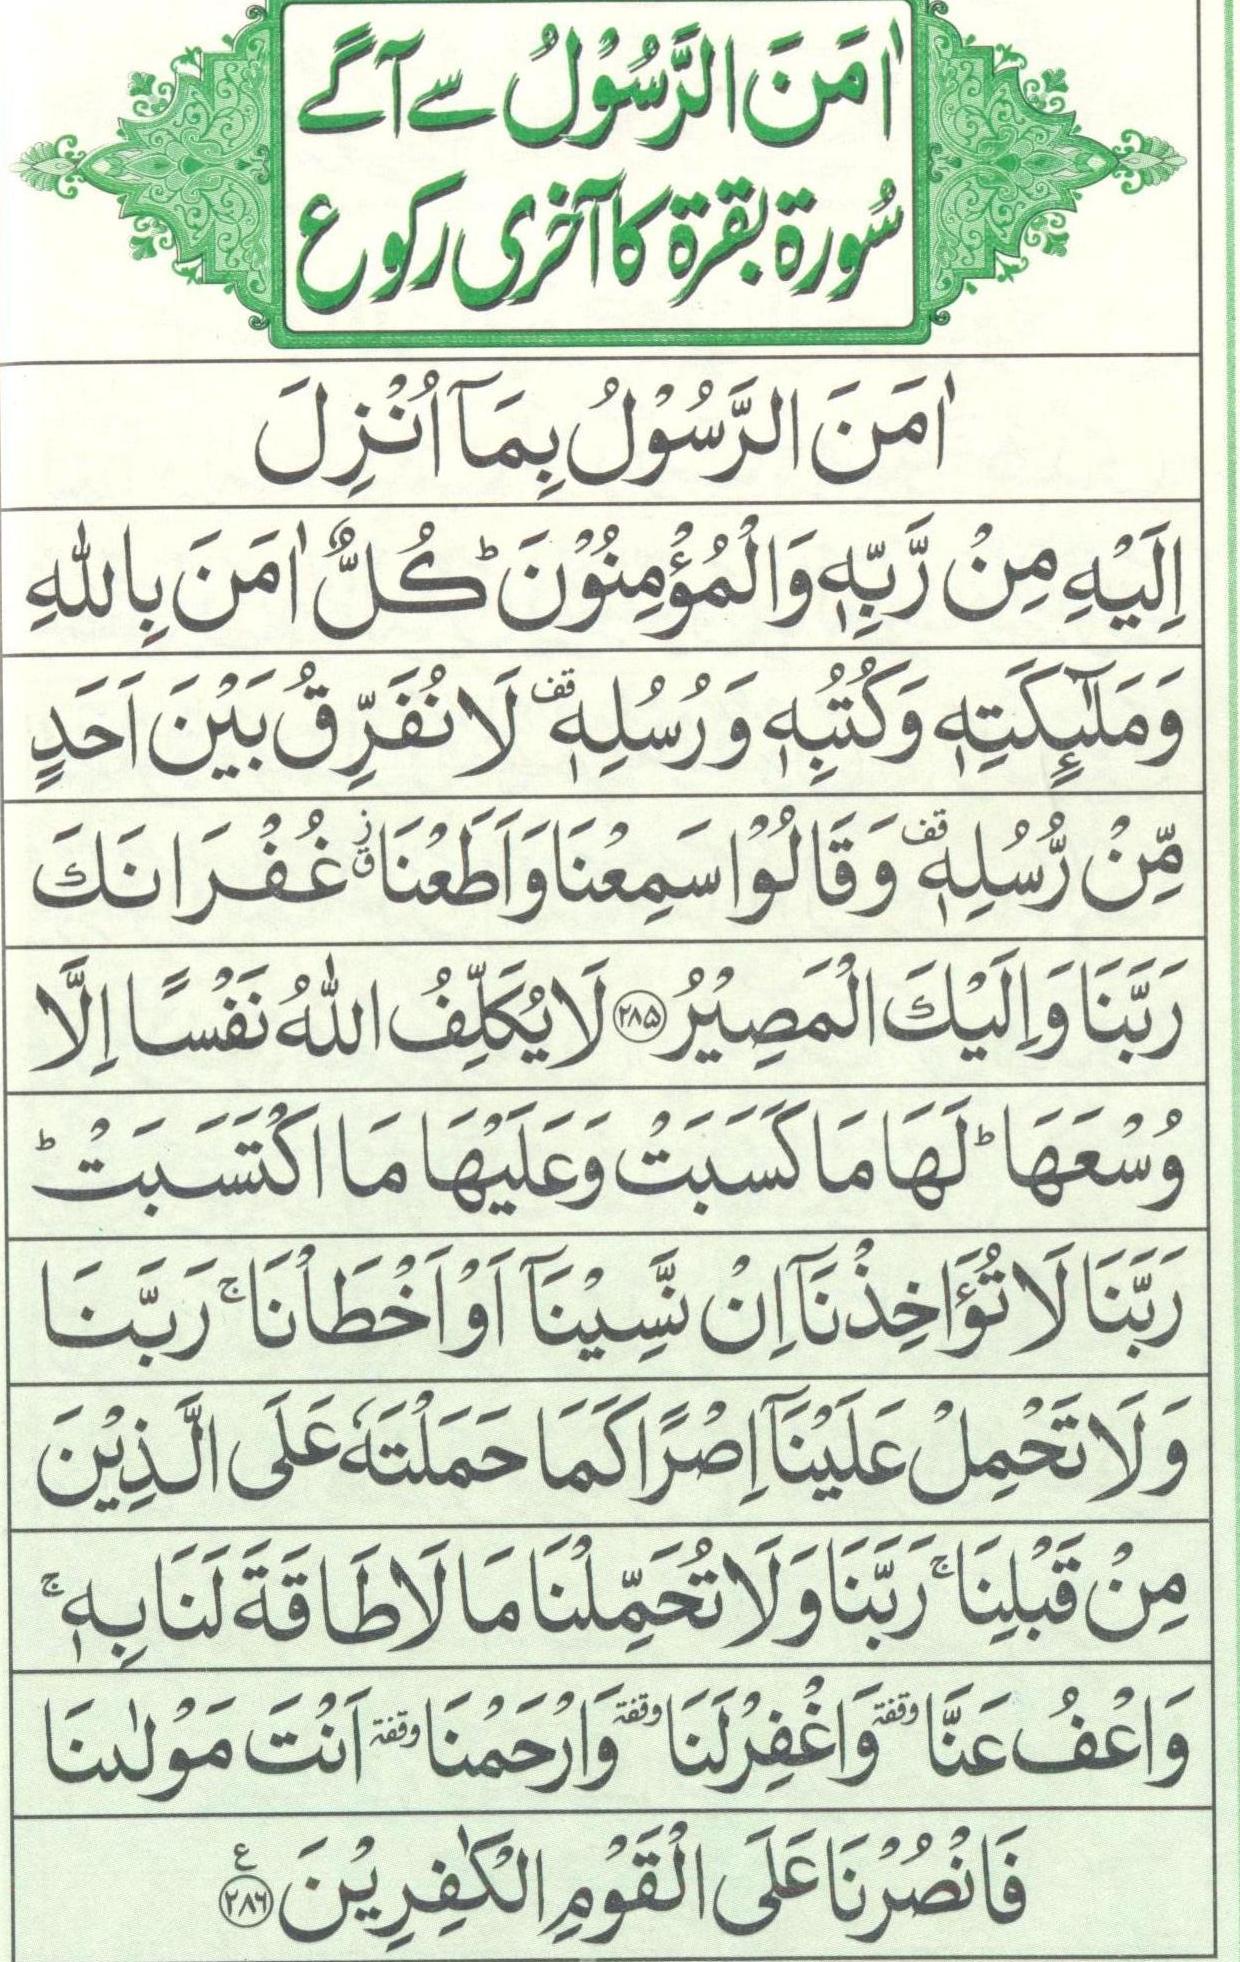 اٰمَنَ الرَّسُوْلُ سے آگے
سُورۃ بقرۃ کا آخری رکوع
اٰمَنَ الرَّسُوْلُ بِمَاۤ اُنْزِلَ
اِلَیْهِ مِنْ رَّبِّهٖ وَالْمُؤْمِنُوْنَ ؕ كُلٌّ اٰمَنَ بِاللّٰهِ
وَمَلٰٓىِٕكَتِهٖ وَكُتُبِهٖ وَرُسُلِهٖ ۫ لَا نُفَرِّقُ بَیْنَ اَحَدٍ
مِّنْ رُّسُلِهٖ ۫ وَقَالُوْا سَمِعْنَا وَاَطَعْنَا ٘ۗ غُفْرَانَكَ
رَبَّنَا وَاِلَیْكَ الْمَصِیْرُ ﴿۲۸۵﴾ لَا یُكَلِّفُ اللّٰهُ نَفْسًا اِلَّا
وُسْعَهَا ؕ لَهَا مَا كَسَبَتْ وَعَلَیْهَا مَا اكْتَسَبَتْ ؕ
رَبَّنَا لَا تُؤَاخِذْنَاۤ اِنْ نَّسِیْنَاۤ اَوْ اَخْطَاْنَا ۚ رَبَّنَا
وَلَا تَحْمِلْ عَلَیْنَاۤ اِصْرًا كَمَا حَمَلْتَهٗ عَلَی الَّذِیْنَ
مِنْ قَبْلِنَا ۚ رَبَّنَا وَلَا تُحَمِّلْنَا مَا لَا طَاقَةَ لَنَا بِهٖ ۚ
وَاعْفُ عَنَّا وقفة وَاغْفِرْ لَنَا وقفة وَارْحَمْنَا وقفة اَنْتَ مَوْلٰىنَا
فَانْصُرْنَا عَلَی الْقَوْمِ الْكٰفِرِیْنَ ﴿۲۸۶﴾ ع